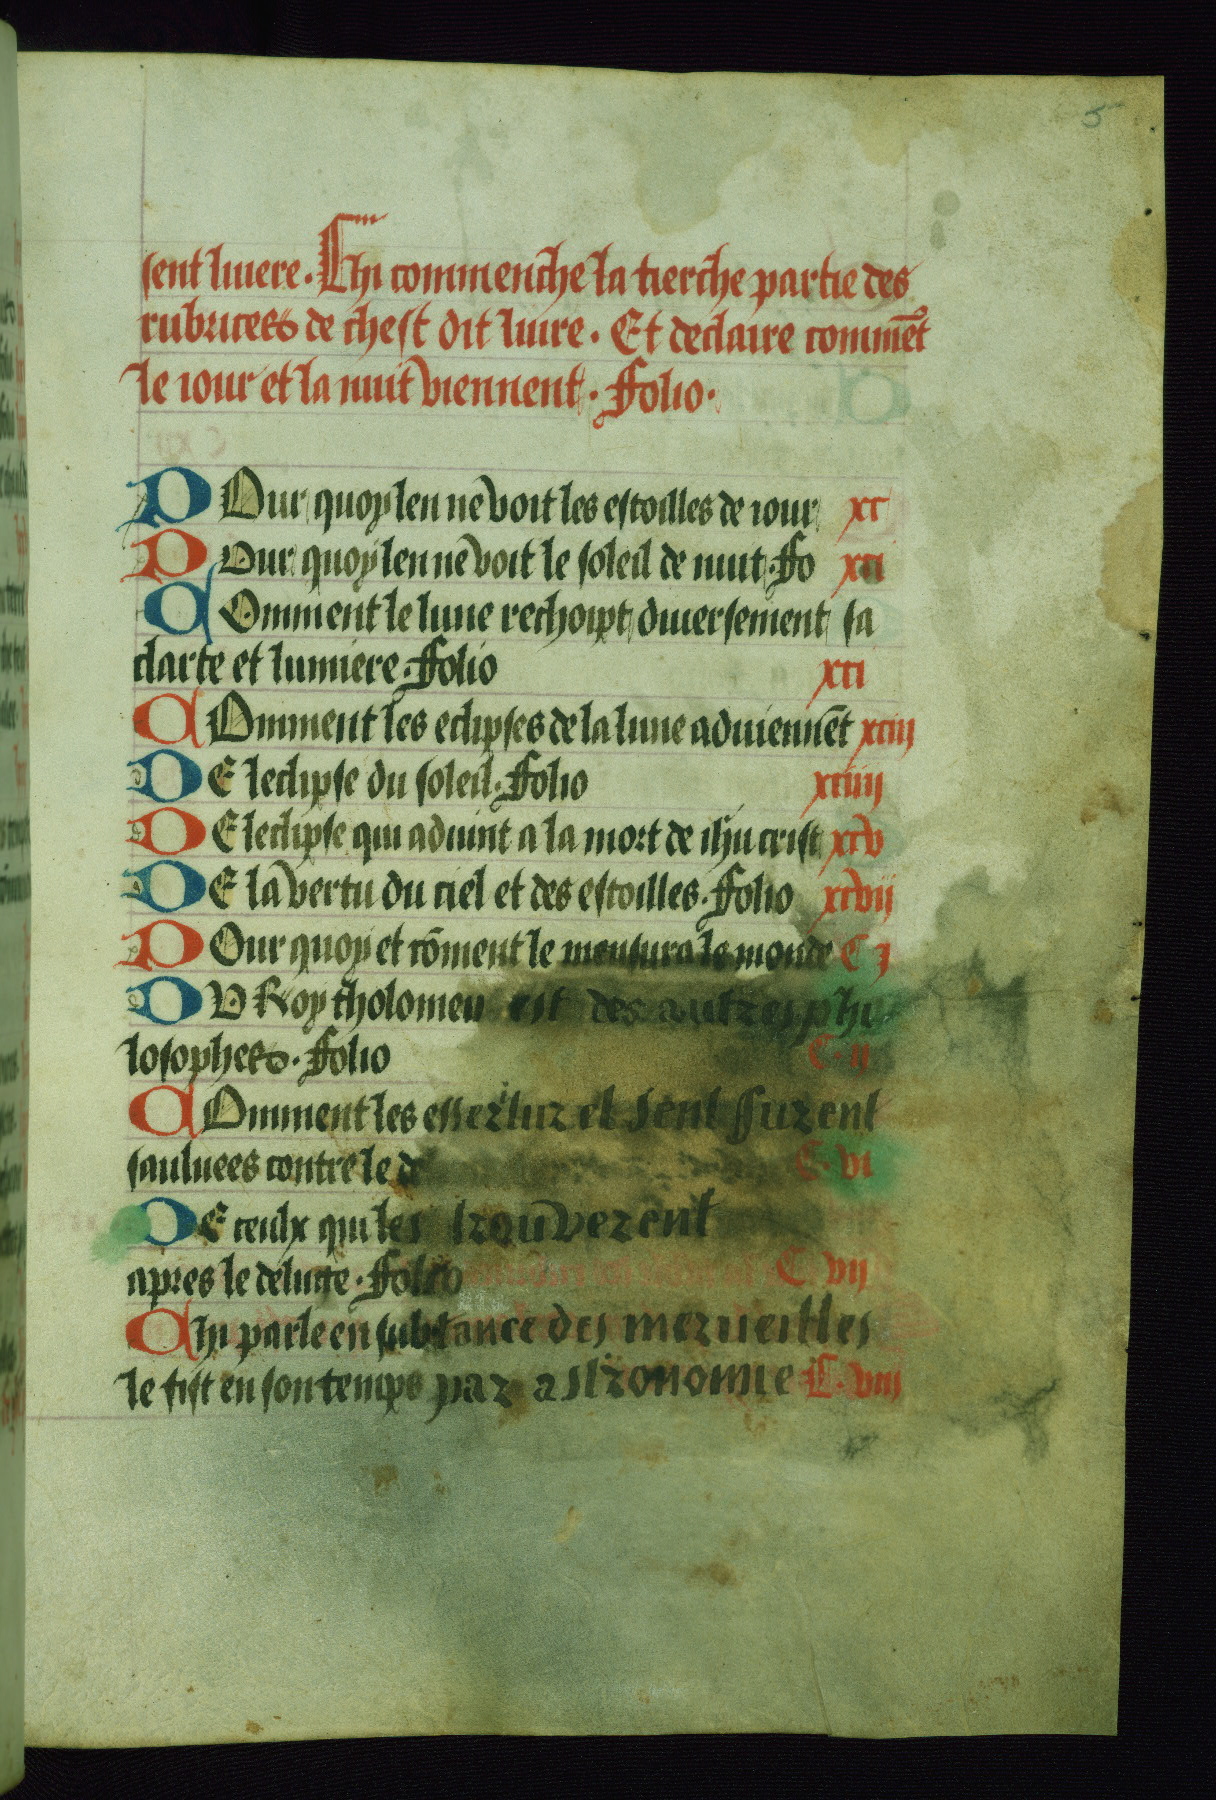 5
sent liuere. Chi commenche la tierche partie des
rubrices de chest dit liure. Et declaire comme͂t
le iour et la nuit viennent. Folio.
POur quoy len ne voit les estoilles de iour xc
POur quoy len ne voit le soleil de nuit. Fo xci
COmment le lune rechoipt diuersement sa
clarte et lumiere. Folio xci
COmment les eclipses de la lune aduienne͂t xciii
DE leclipse du soleil. Folio xciiii
DE leclipse qui aduint a la mort de ihu crist xcv
DE la vertu du ciel et des estoilles. Folio xcvii
POur quoy et co͂ment le mensura le monde C j
DU Roy tholomeu est des aultres phi
losophes. Folio C. ii
COmment les escr et sent Furent
sauluees contre le C. vi
DE ceulx qui les trouverent
apres le deluue. Folio C. vii
Chi parle en substance des merueilles
le fist en son temps par astronomie C. viii